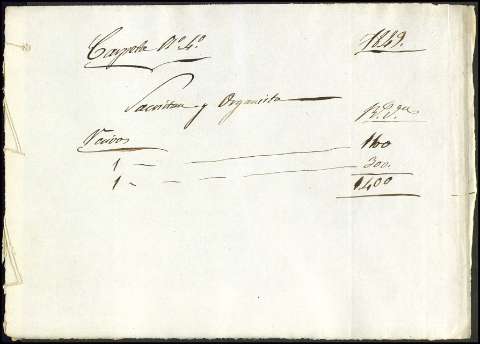 Carpeta Nº 4º 1849.
Sacristan y Organista
Rs. vn
Recibos
1 — 1100
1 — 300.
1.400